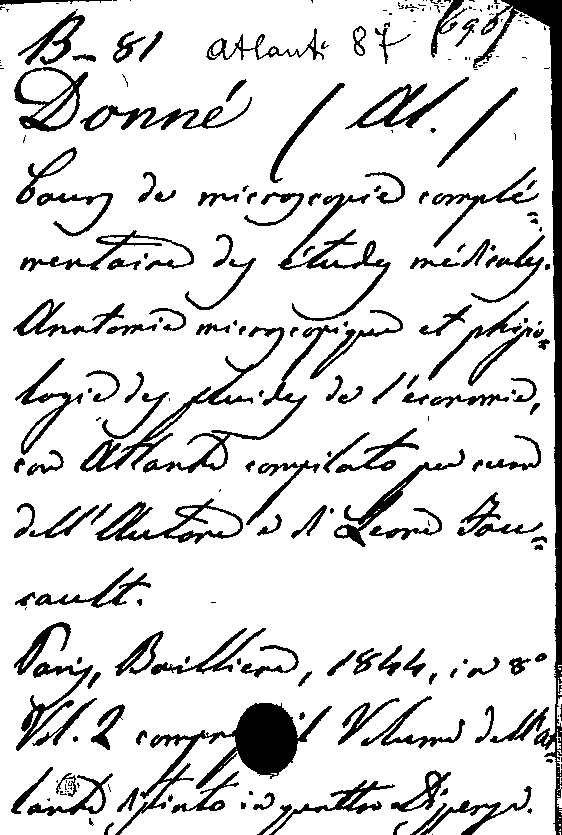 B-81 Atlanti 87 (696)
Donné (Al.)
Cours de microscopie complé=
mentaire des études médicales.
Anatomie microscopique et physio=
logie des fluides de l'économie,
con Atlante compilato per cura
dell'Autore e di Leone Fou=
cault.
Paris, Baillière, 1844, in 8°
Vol. 2 compreso il Volume dell'At=
lante distinto in quattro Dispense.